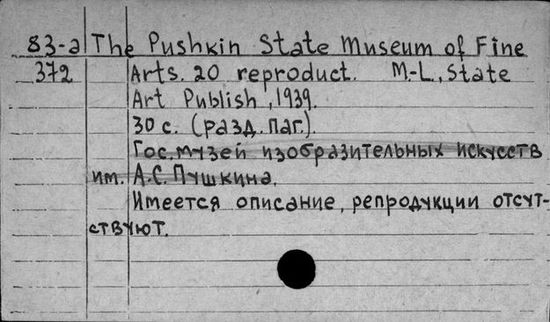 83-а The Pushkin State Museum of Fine
372 Arts. 20 reproduct. M.-L., State
Art Publish, 1939.
30 с. (разд. паг.).
Гос. музей изобразительных искусств
им. А.С. Пушкина.
Имеется описание, репродукции отсут-
ствуют.